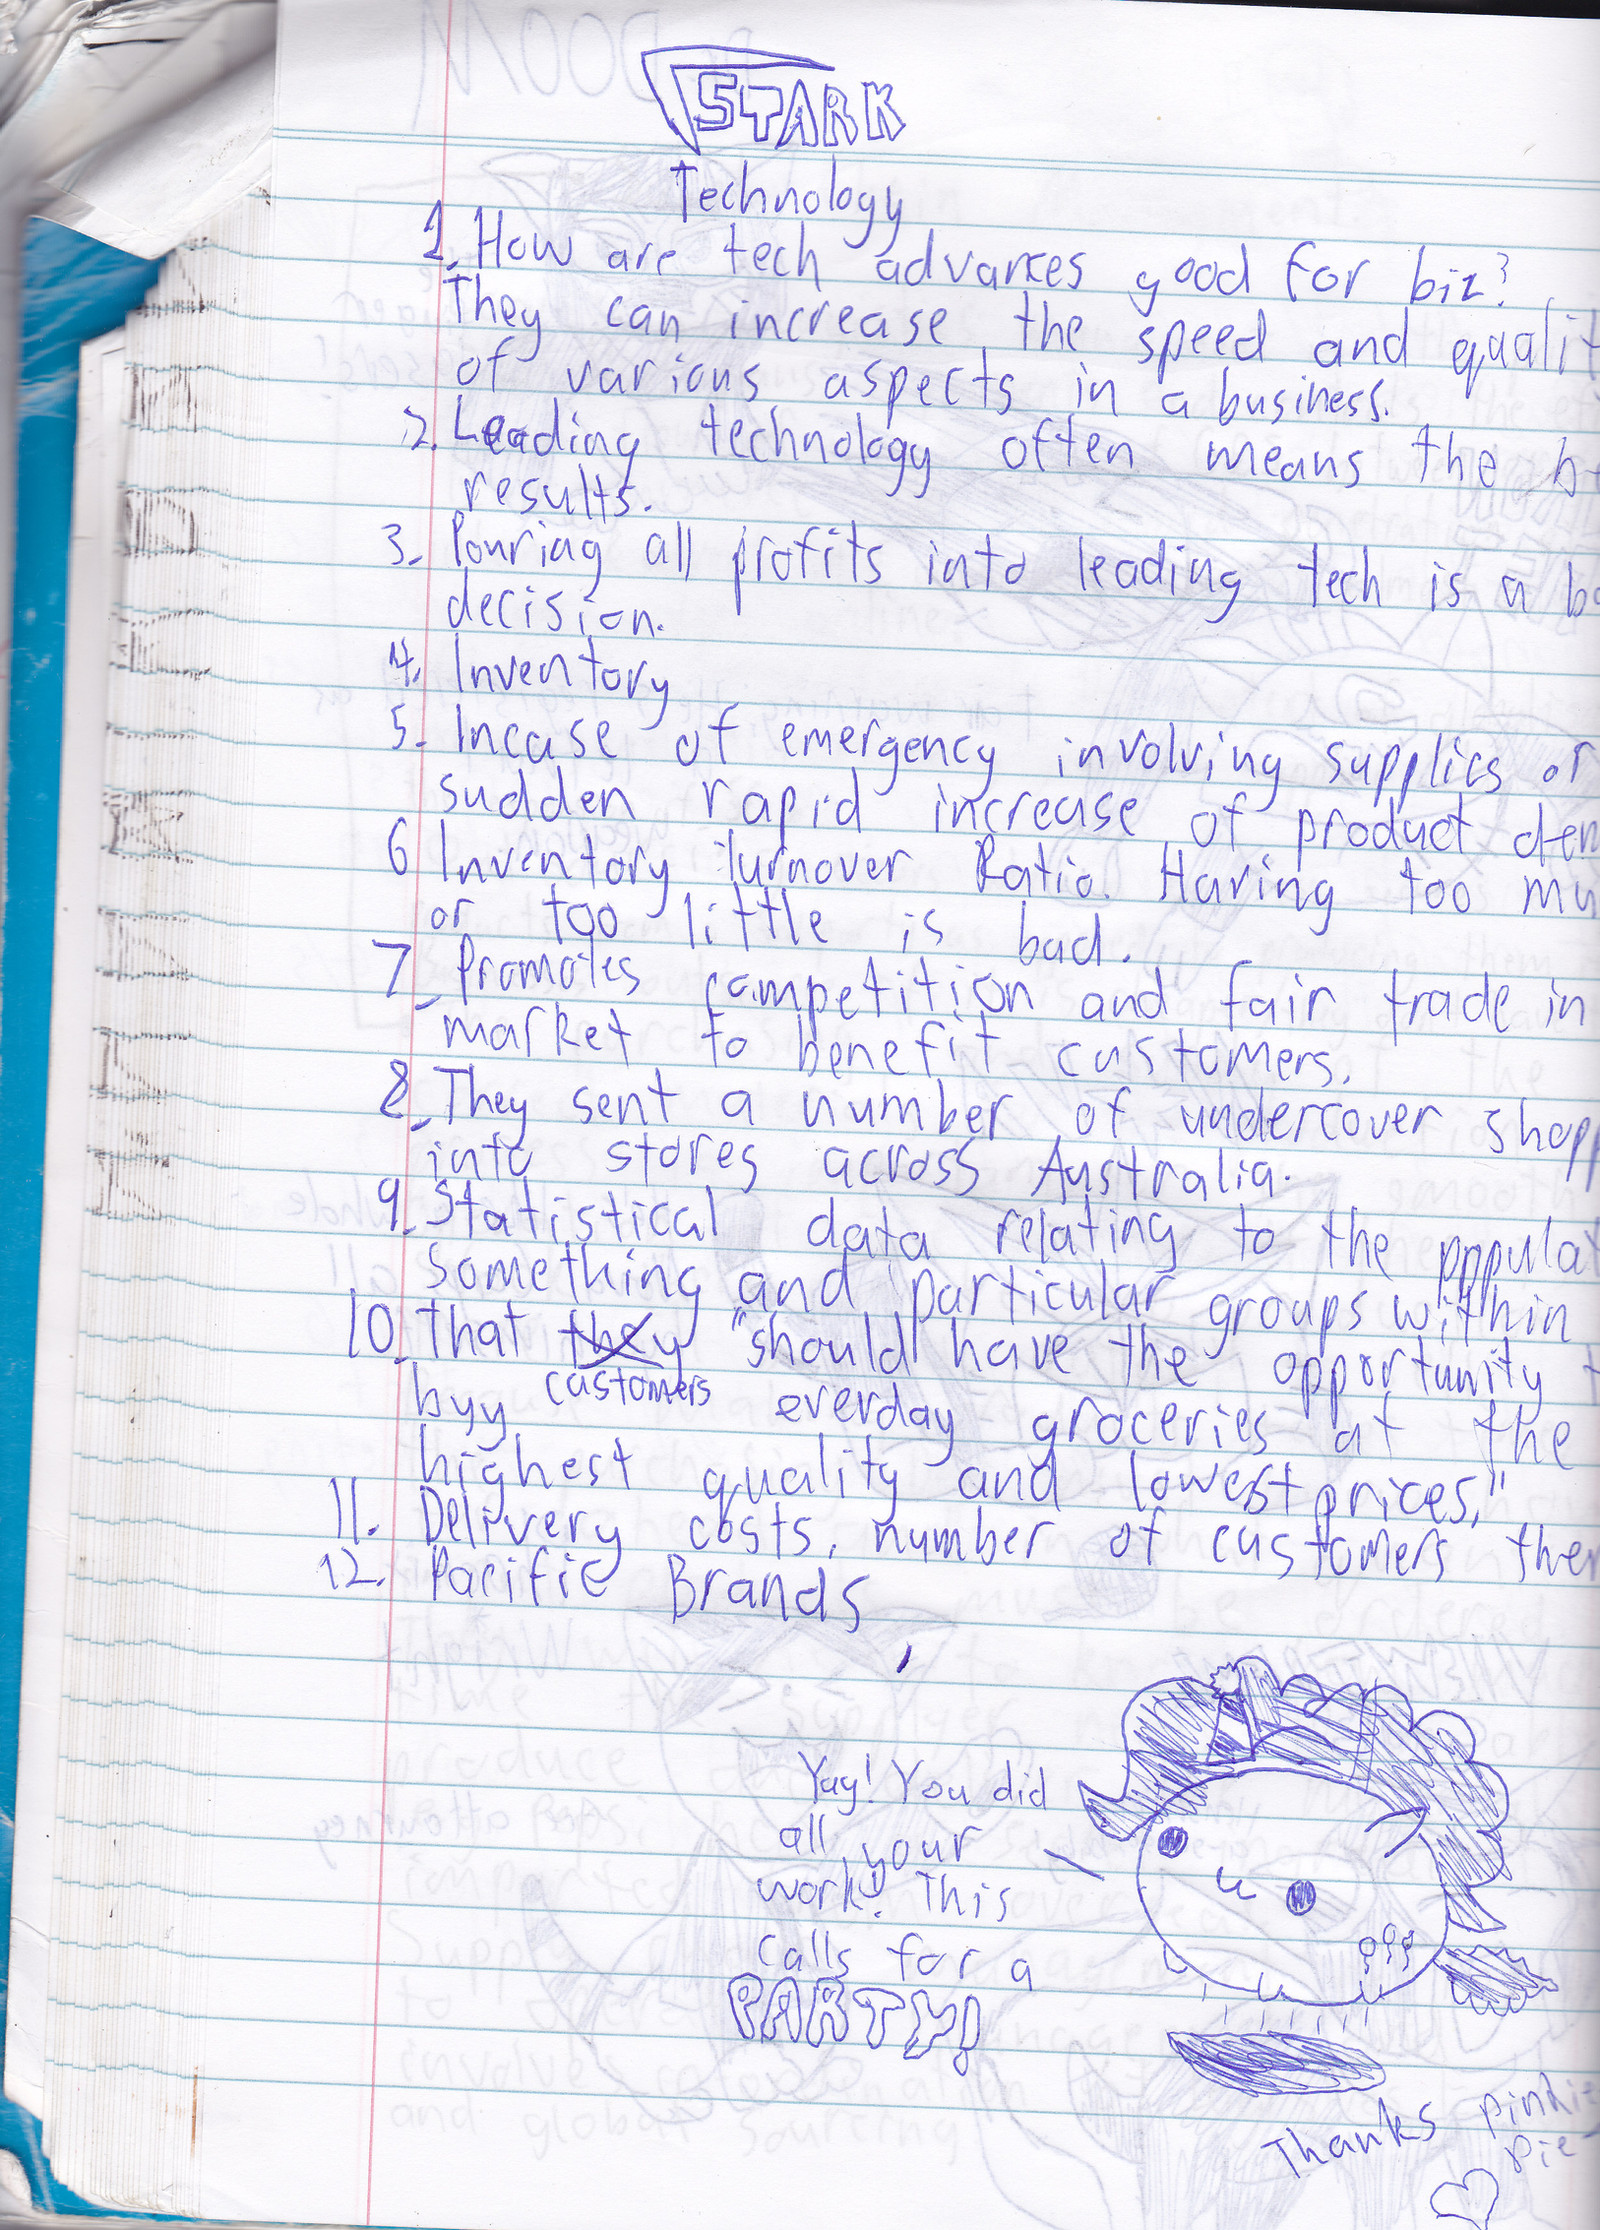 STARK
Technology
1. How are tech advances good for biz?
They can increase the speed and qualit
of various aspects in a business.
2. Leading technology often means the b
results.
3. Pouring all profits into leading tech is a ba
decision.
4. Inventory
5. Incase of emergency involving supplies or
sudden rapid increase of product dem
6 Inventory Turnover Ratio. Having too mu
or too little is bad.
7. Promotes competition and fair trade in
market to benefit customers.
8. They sent a number of undercover shopp
into stores across Australia.
9. Statistical data relating to the populat
something and particular groups within
10. That they "should have the opportunity t
byy customers everday groceries at the
highest quality and lowest prices."
11. Delivery costs, number of customers ther
12. Pacific Brands
Yay! You did
all your
work! This
calls for a
PARTY!
Thanks pinkie
pie